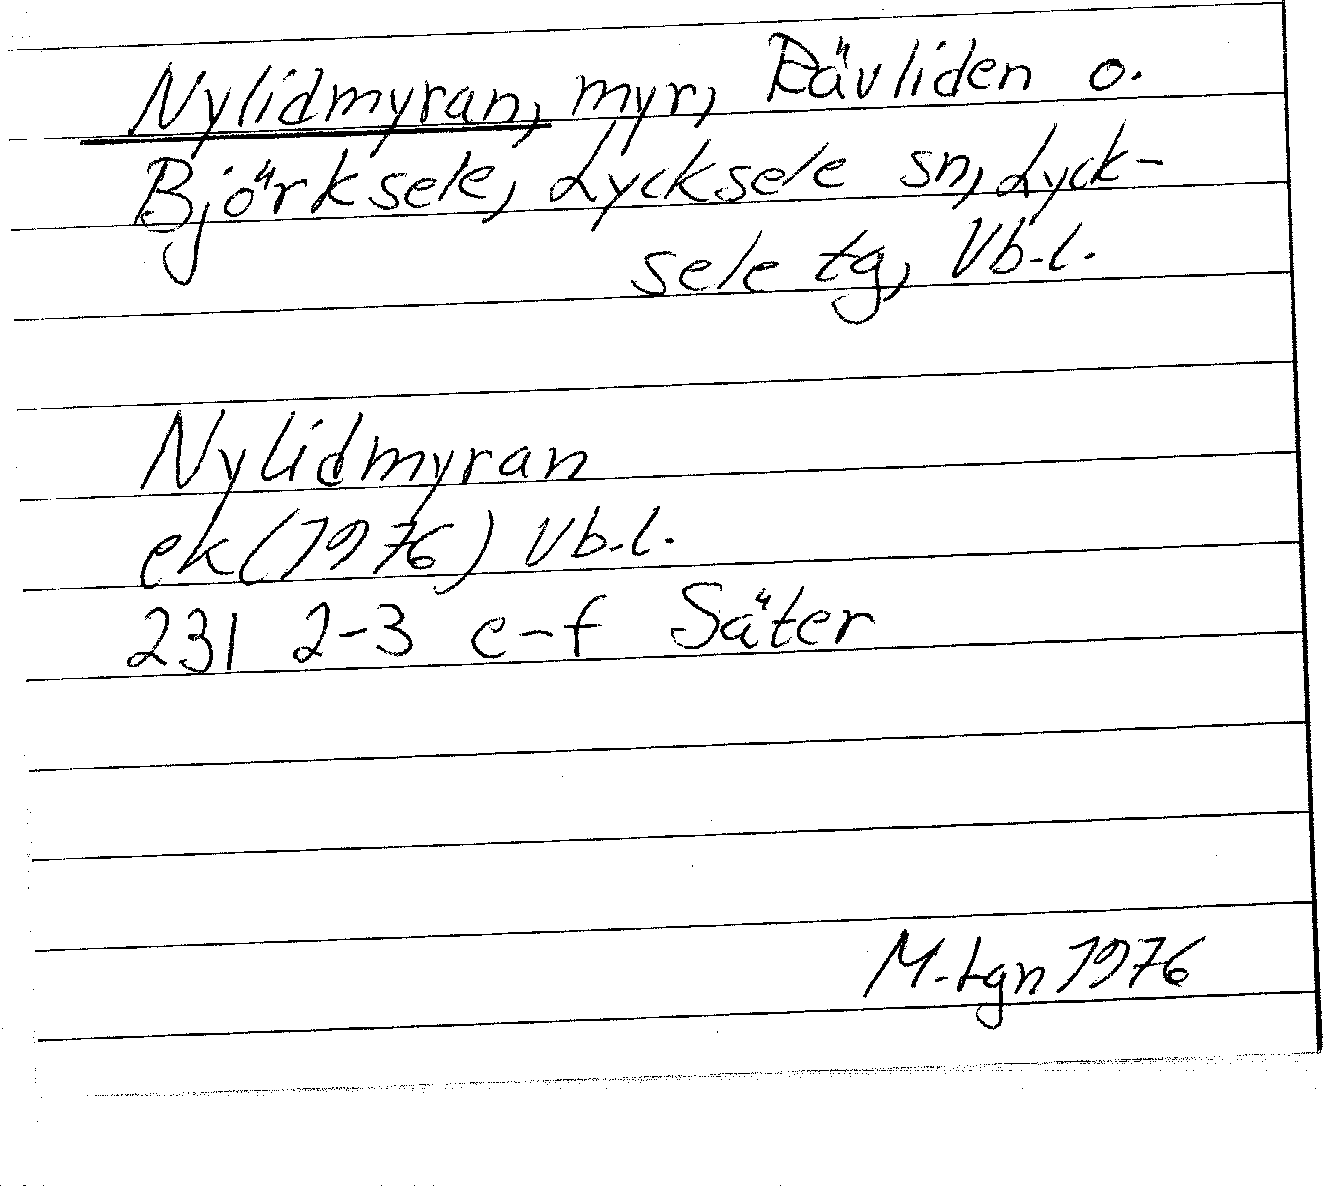 Nylidmyran, myr, Rävliden o.
Björksele, Lycksele sn, Lyck-
sele tg, Vb.l.
Nylidmyran
ek (1976) Vb.l.
231 2-3 e-f Säter
M.Lgn 1976